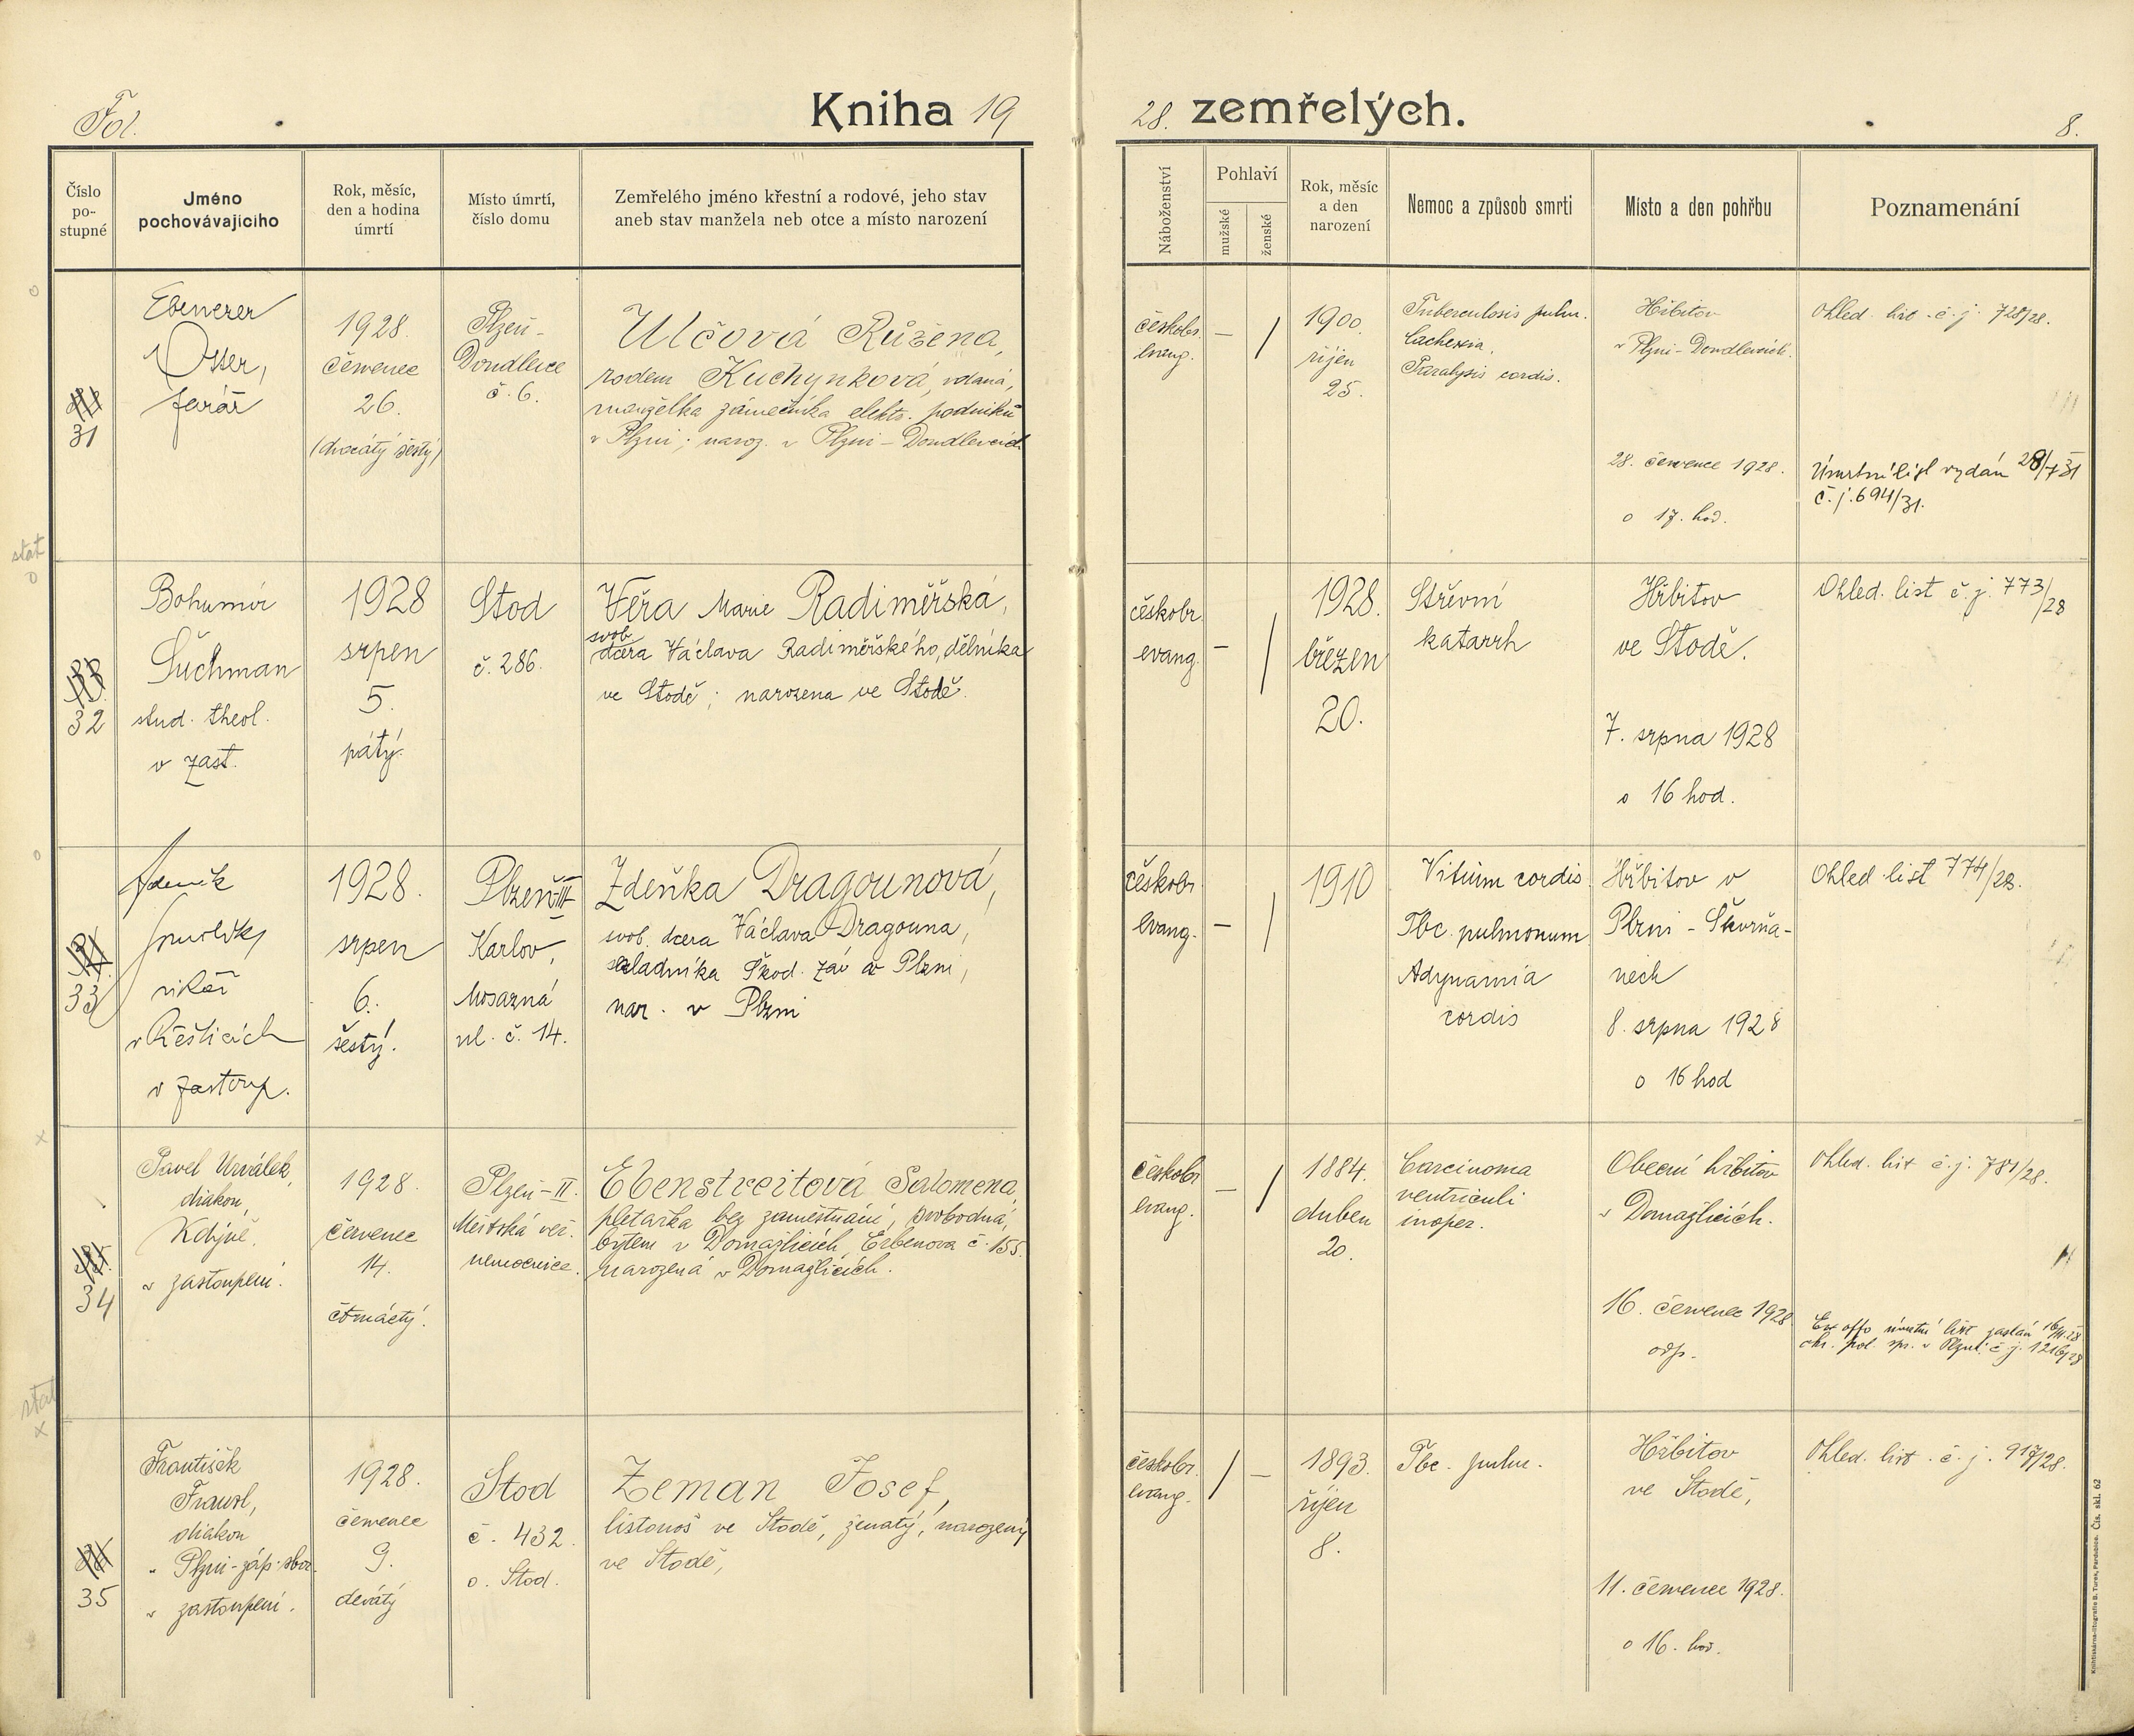 Fol.
Kniha 19
28. zemřelých.
8.
Číslo po-stupné
Jméno pochovávajícího
Rok, měsíc, den a hodina úmrtí
Místo úmrtí, číslo domu
Zemřelého jméno křestní a rodové, jeho stav aneb stav manžela neb otce a místo narození
Náboženství
Pohlaví
mužské
ženské
Rok, měsíc a den narození
Nemoc a způsob smrti
Místo a den pohřbu
Poznamenání
31
Ebenezer
Otter,
farář
1928.
červenec
26.
(dvacátý šestý)
Plzeň-
Doudlevce
č. 6.
Ulčová Růžena,
rodem Kuchynková, vdaná,
manželka zámečníka elektr. podniků
v Plzni; naroz. v Plzni-Doudlevcích.
českobr.
evang.
–
/
1900.
říjen
25.
Tuberculosis pulm.
Cachexia.
Paralysis cordis.
Hřbitov
v Plzni-Doudlevcích.
28. července 1928.
o 17. hod.
Ohled. list. č. j. 728/28.
Úmrtní list vydán 28/7 31
č. j. 694/31.
stat
32
Bohumír
Suchman
stud. theol.
v zast.
1928
srpen
5.
pátý.
Stod
č. 286.
Věra Marie Radiměřská,
svob.
dcera Václava Radiměřského, dělníka
ve Stodě; narozena ve Stodě.
českobr.
evang.
–
/
1928.
březen
20.
Střevní
katarrh
Hřbitov
ve Stodě.
7. srpna 1928
o 16 hod.
Ohled. list č. j. 773/28
33
Zdeněk
Smolský
vikář
v Řešticích
v zastoup.
1928.
srpen
6.
šestý.
Plzeň-III
Karlov,
Mosazná
ul. č. 14.
Zdeňka Dragounová,
svob. dcera Václava Dragouna,
skladníka Škod. záv. v Plzni,
nar. v Plzni
českobr.
evang.
–
/
1910
Vitium cordis
Tbc. pulmonum
Adynamia
cordis
Hřbitov v
Plzni-Skvrňa-
nech
8. srpna 1928
o 16 hod
Ohled. list 774/28.
34
Pavel Urválek,
diakon,
Kdýně,
v zastoupení.
1928.
červenec
14.
čtrnáctý.
Plzeň-II.
Městská veř.
nemocnice.
Ebenstreitová Salomena,
pletařka bez zaměstnání, svobodná,
bytem v Domažlicích, Erbenova č. 155.
narozená v Domažlicích.
českobr.
evang.
–
/
1884.
duben
20.
Carcinoma
ventriculi
inoper.
Obecní hřbitov
v Domažlicích.
16. červenec 1928
odp.
Ohled. list č. j. 781/28.
Ex offo úmrtní list zaslán
okr. pol. spr. v Plzni č. j. 1216/28
stat
35
František
Frausl,
diakon
v Plzni-záp. sbor
v zastoupení.
1928.
červenec
9.
devátý
Stod
č. 432
o. Stod.
Zeman Josef,
listonoš ve Stodě, ženatý, narozený
ve Stodě,
českobr.
evang.
/
–
1893.
říjen
8.
Tbc. pulm.
Hřbitov
ve Stodě,
11. červenec 1928.
o 16. hod.
Ohled. list. č. j. 917/28.
Knihtiskárna-litografie B. Turek, Pardubice. Čís. skl. 62